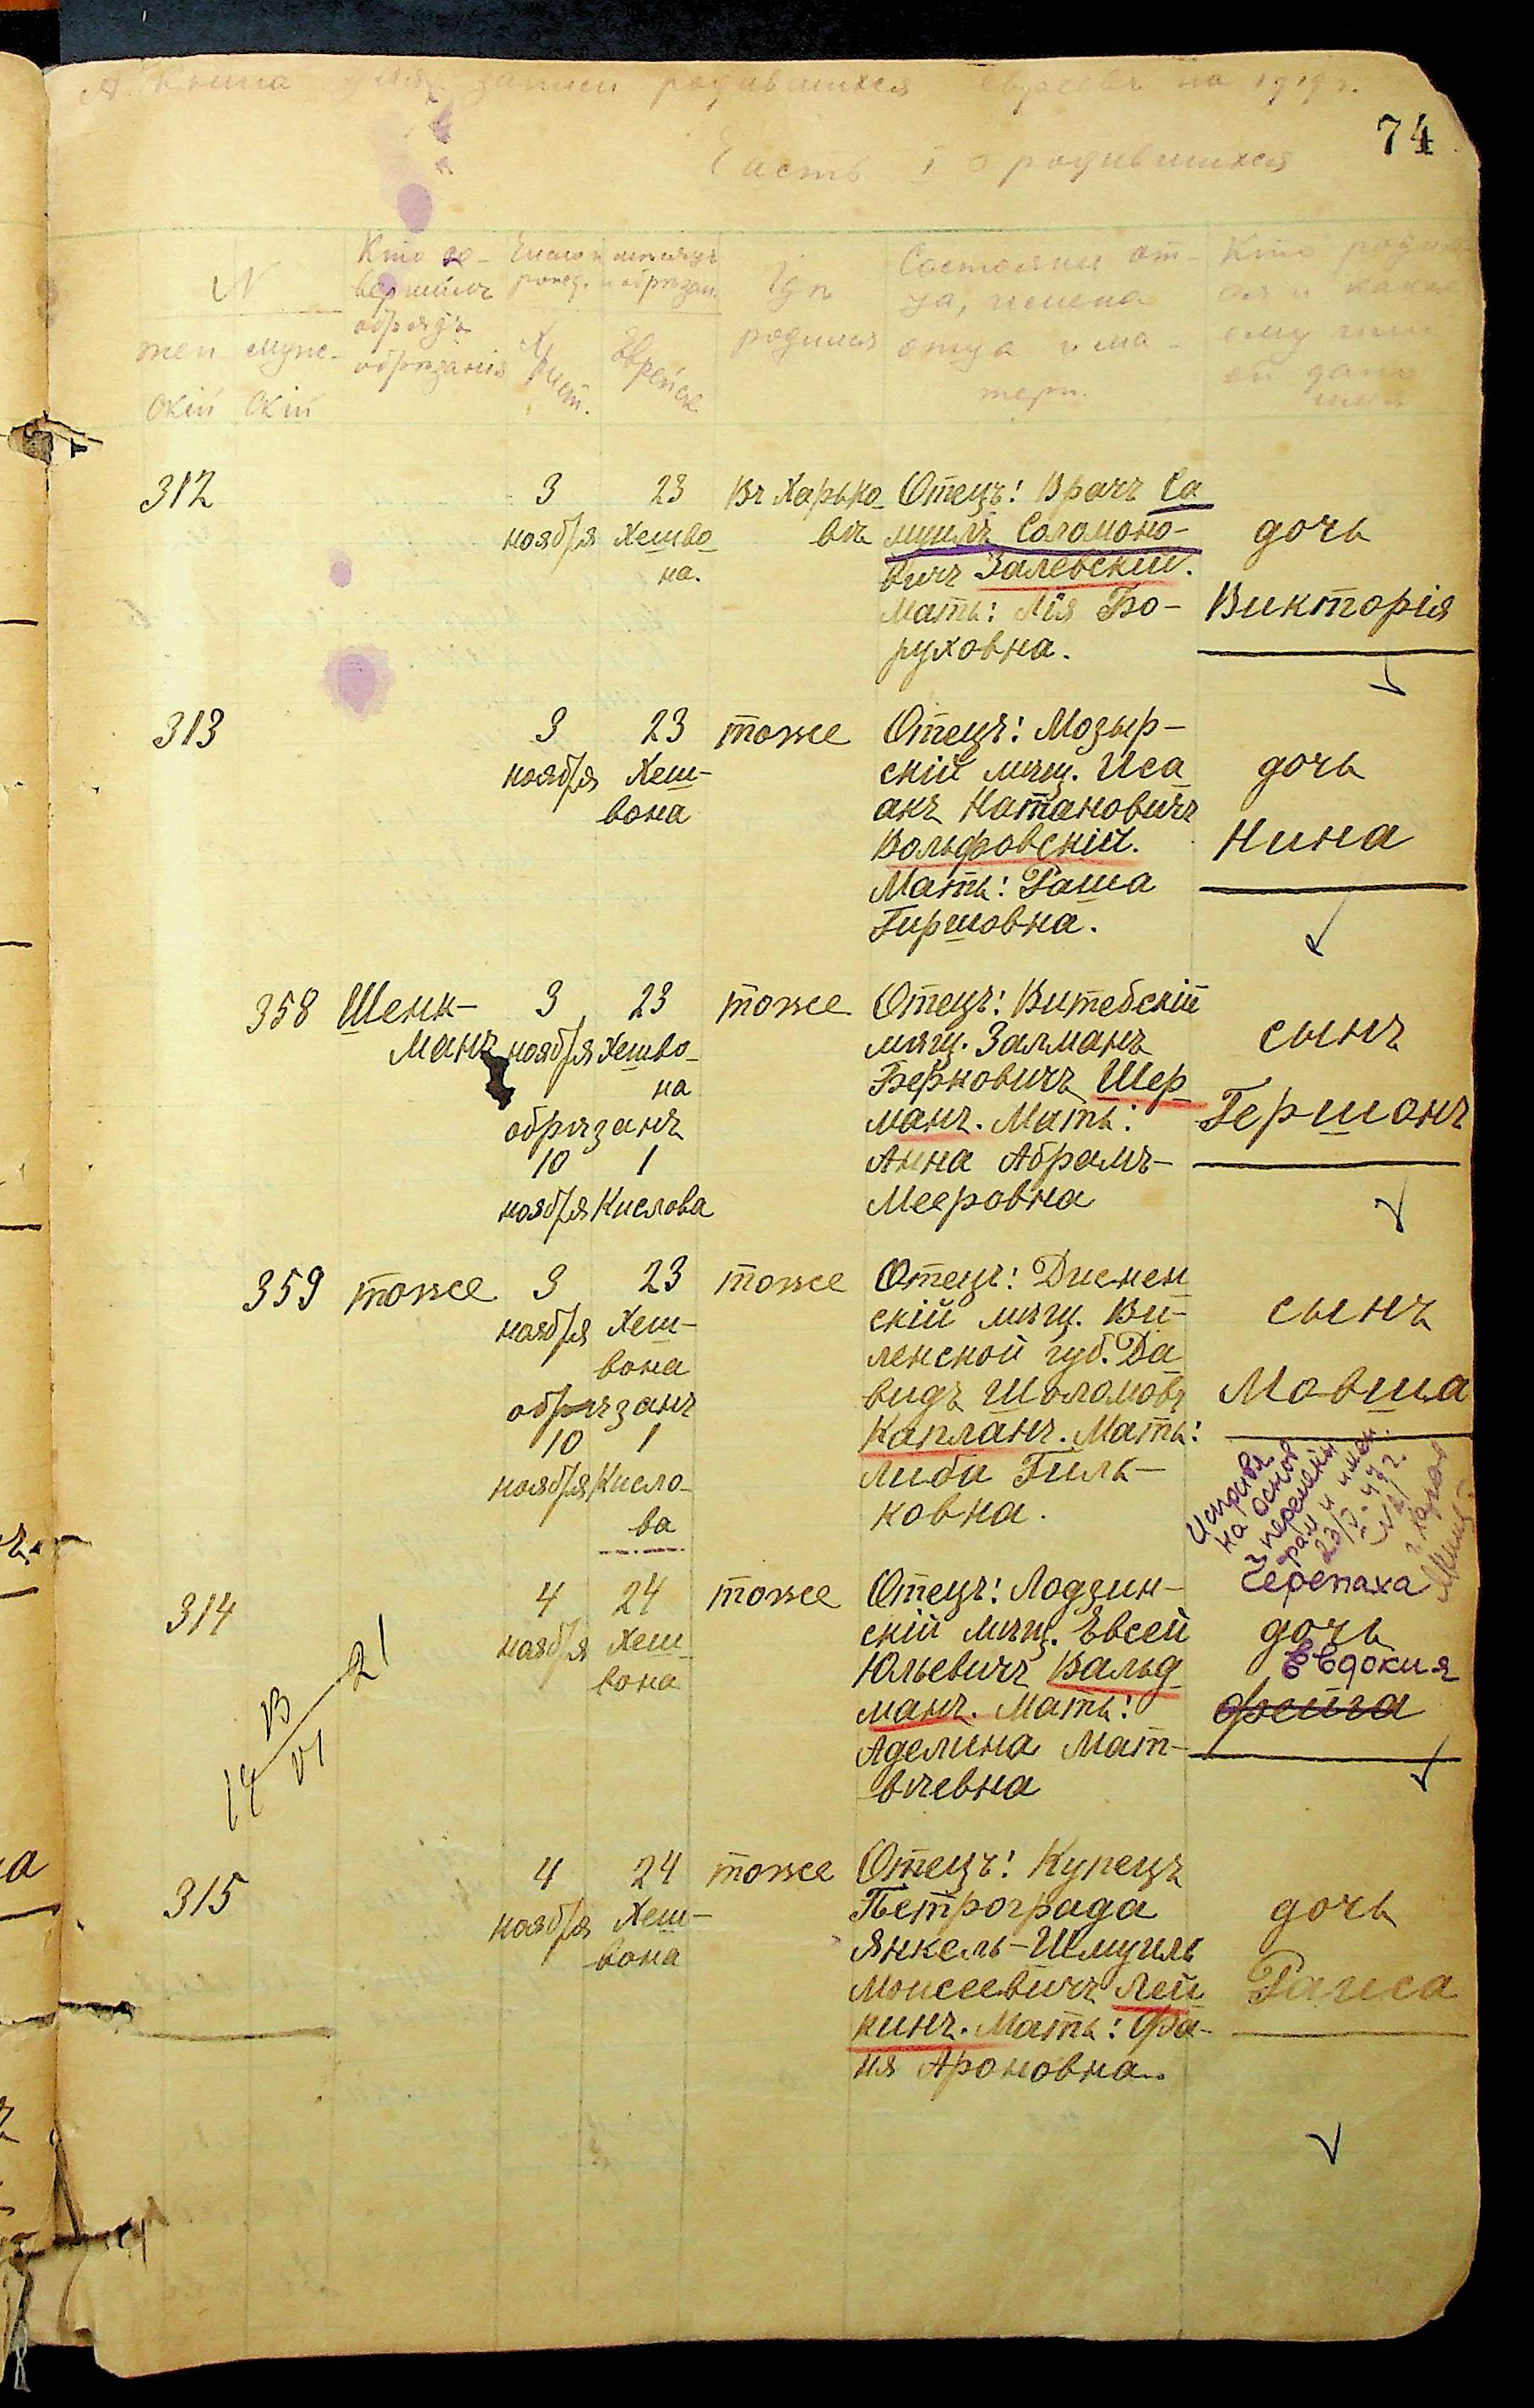 А. Книга для записи родившихся евреевъ на 1919 г.
74
Часть I о родившихся
№
жен- муже-
скій скій
Кто со-
вершилъ
обрядъ
обрѣзанія
Число и мѣсяцъ
рожд. и обрѣзан.
Христ.
Еврейск.
Гдѣ
родился
Состояніе от-
ца, имена
отца и ма-
тери.
Кто родил-
ся и какое
ему или
ей дано
имя
312
3
ноября
23
Хешво
на.
Въ Харько
вѣ
Отецъ: Врачъ Са
муилъ Соломоно-
вичъ Залевскій.
Мать: Лія Бо-
руховна.
дочь
Викторія
313
3
ноября
23
Хеш-
вона
тоже
Отецъ: Мозыр-
скій мѣщ. Иса
акъ Натановичъ
Вольфовскій.
Мать: Раша
Гиршовна.
дочь
Нина
358
Шенк-
манъ
3
ноября
23
Хешво
на
обрѣзанъ
10 1
ноября Кислова
тоже
Отецъ: Витебскій
мѣщ. Залманъ
Берковичъ Шер
манъ. Мать:
Анна Абрамъ-
Мееровна
сынъ
Гершонъ
359
тоже
3
ноября
23
Хеш-
вона
обрѣзанъ
10 1
ноября Кисло-
ва
тоже
Отецъ: Диснен
скій мѣщ. Ви-
ленской губ. Да
видъ Шоломовъ
Капланъ. Мать:
Либа Гиль-
ковна.
сынъ
Мовша
на основ
перемены
фам и имен.
Черепаха
314
14 21
VI
4
ноября
24
Хеш
вона
тоже
Отецъ: Лодзин-
скій мѣщ. Евсей
Юльевичъ Вальд
манъ. Мать:
Аделина Мат-
вѣевна
дочь
Евдокия
Фейга
315
4
ноября
24
Хеш-
вона
тоже
Отецъ: Купецъ
Петрограда
Янкель-Шмуиль
Моисеевичъ Лей
кинъ. Мать: Фа-
ня Ароновна.
дочь
Раиса